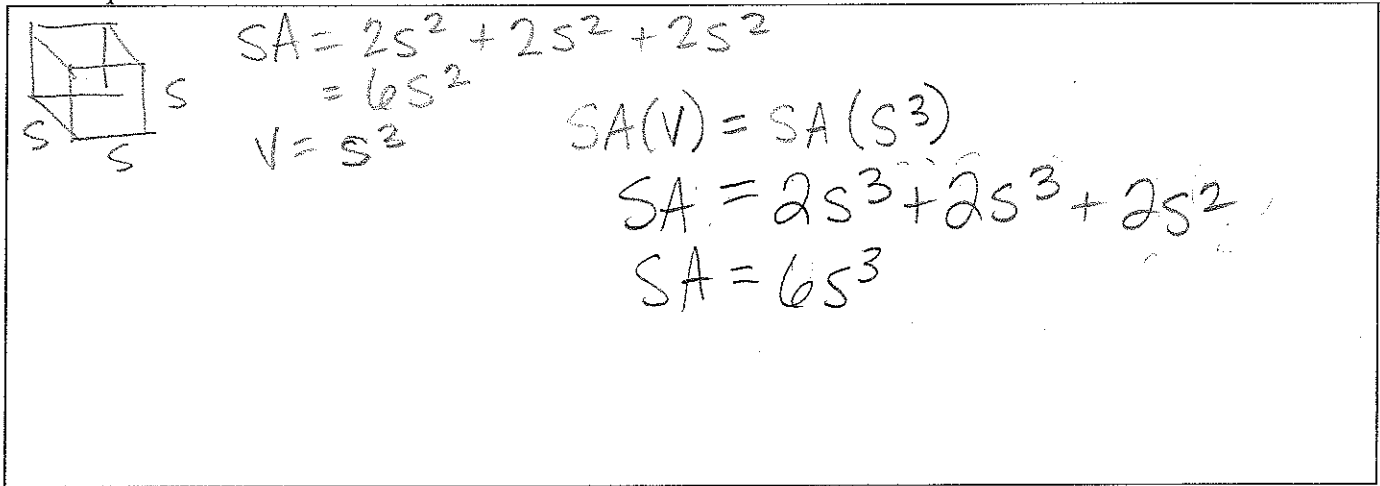 SA = 2s² + 2s² + 2s²
= 6s²
s
s
s
V = s³
SA(V) = SA(s³)
SA = 2s³ + 2s³ + 2s²
SA = 6s³